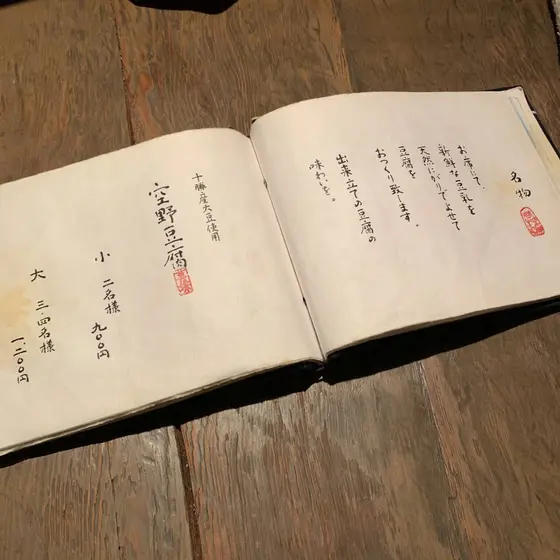 名物
お席にて、
新鮮な豆乳を
天然にがりでよせて
豆腐を
おつくり致します。
出来立ての豆腐の
味わいを。
十勝産大豆使用
空野豆腐
小 二名様 九〇〇円
大 三四名様
一、二〇〇円